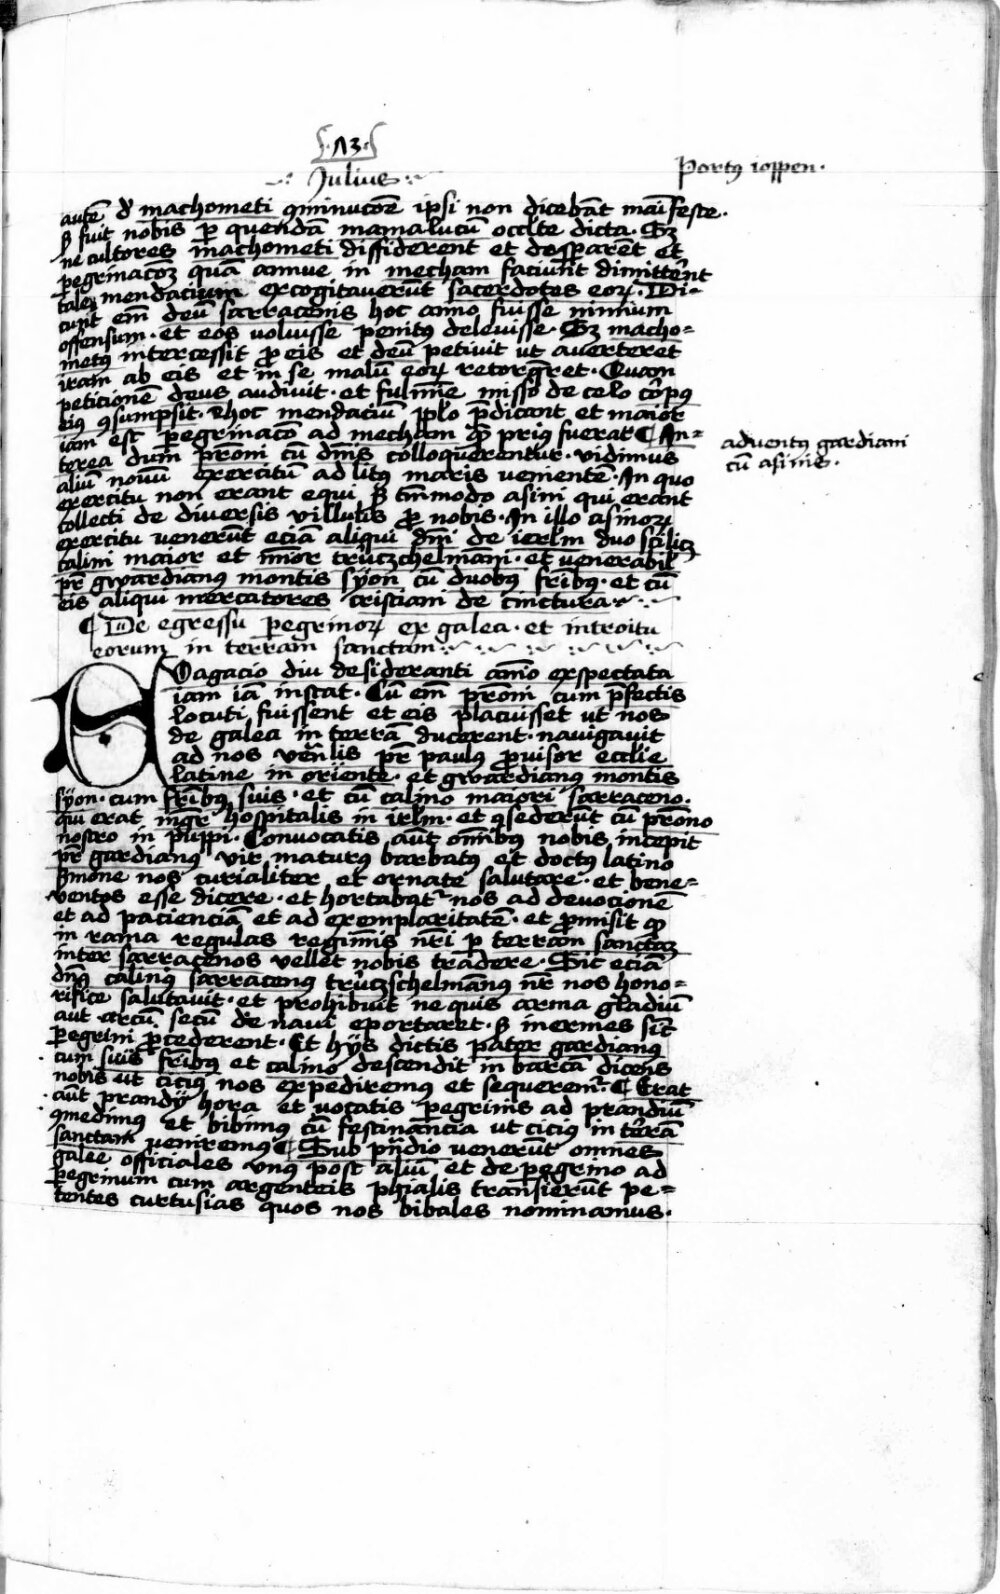 ·73·
Julius
Portus ioppen·
autē de machometi ꝯminucōe ipsi non dicebāt manifeste·
sꝫ fuit nobis ꝑ quendā mamalucū occlte dicta· Sꝫ
ne cultores machometi diffiderent et despararēt et
ꝑegrinacōꝫ quā annue in mecham faciūt dimittēnt
tales mendacium excogitaverūt sacerdotes eoꝝ· Di-
cūt em̄ deū sarracenis hoc anno fuisse nimium
offensum· et eos voluisse penitꝰ delevisse· Sꝫ macho=
metꝰ intercessit ꝓ eis et deū petivit ut averteret
iram ab eis et in se malū eoꝝ retorq̄ret· Quam
peticionē deus audivit· et fulmīe misso de celo corpꝰ
eiꝰ ꝯsumpsit· Et hoc mendaciū pplo p̄dicant et maior
iam est ꝑegrinaco ad mecham qᷓ priꝰ fuerat ¶ An=
terea dum prom̄ cū dnīs colloquerentur· vidimus
aliū novū exercitū ad litꝰ maris venientē· In quo
exercitu non erant equi sꝫ tm̄modo asini qui erant
collecti de diversis villulis ꝓ nobis· In illo asinoꝝ
exercitu venerūt eciā aliqui dnī de ierlm duo scilicꝫ
calini maior et minor trūtzschelmānī· et venerabil
pr̄ gwardianꝰ montis syon cū duobꝰ frībꝰ· et cū
eis aliqui mercatores cristiani de cinctura·
adventꝰ gardiani
cū asinis·
¶ De egressu ꝑegrinoꝝ ex galea· et introitu
eorum in terram sanctam
Evagacio diu desideranti animo expectata
iam iā instat· Cū em̄ prom̄ cum p̄fectis
locuti fuissent et eis placuisset ut nos
de galea in terrā ducerent· navigavit
ad nos vēnlis pr̄ paulꝰ ꝓvisor ecclie
latine in oriente· et gwardianꝰ montis
syon· cum frībꝰ suis· et cū calino maiori sarraceno·
qui erat mgr̄ hospitalis in irlm· et ꝯsederūt cū prōno
nostro in puppi· Convocatis aūt omībus nobis incepit
pr̄ gardianꝰ vir maturꝰ barbatꝰ et doctꝰ latino
sermone nos curialiter et ornate salutare· et bene=
ventos esse dicere· et hortabat᷑ nos ad devocionē
et ad pacienciā et ad exemplaritatē· et ꝓmisit qꝫ
in rama regulas regimīs nr̄i ꝑ terram sanctā
inter sarracenos vellet nobis tradere· Sic eciā
dnꝰ calinꝰ sarracenꝰ trūtzschelmānꝰ nr̄ nos hono=
rifice salutavit· et prohibuit ne quis arma gladiū
aut arcū secū de navi eportaret· sꝫ inermes sīc
ꝑegrini ꝓcederent· Et hijs dictis pater gardianꝰ
cum suis frībꝰ et calino descendit in barcā dicens
nobis ut ciciꝰ nos expediremus et sequerem᷑· ¶ Erat
aūt prandij hora et vocatis ꝑegrinis ad prandiū
ꝯmedimꝰ et bibimꝰ cū festinancia ut ciciꝰ in terrā
sanctam veniremꝰ ¶ Sub prandio venerūt omnes
galee officiales vnꝰ post aliū et de ꝑegrino ad
ꝑegrinum cum argenteis phialis transierūt pe=
tentes curtusias quos nos bibales nominamus·